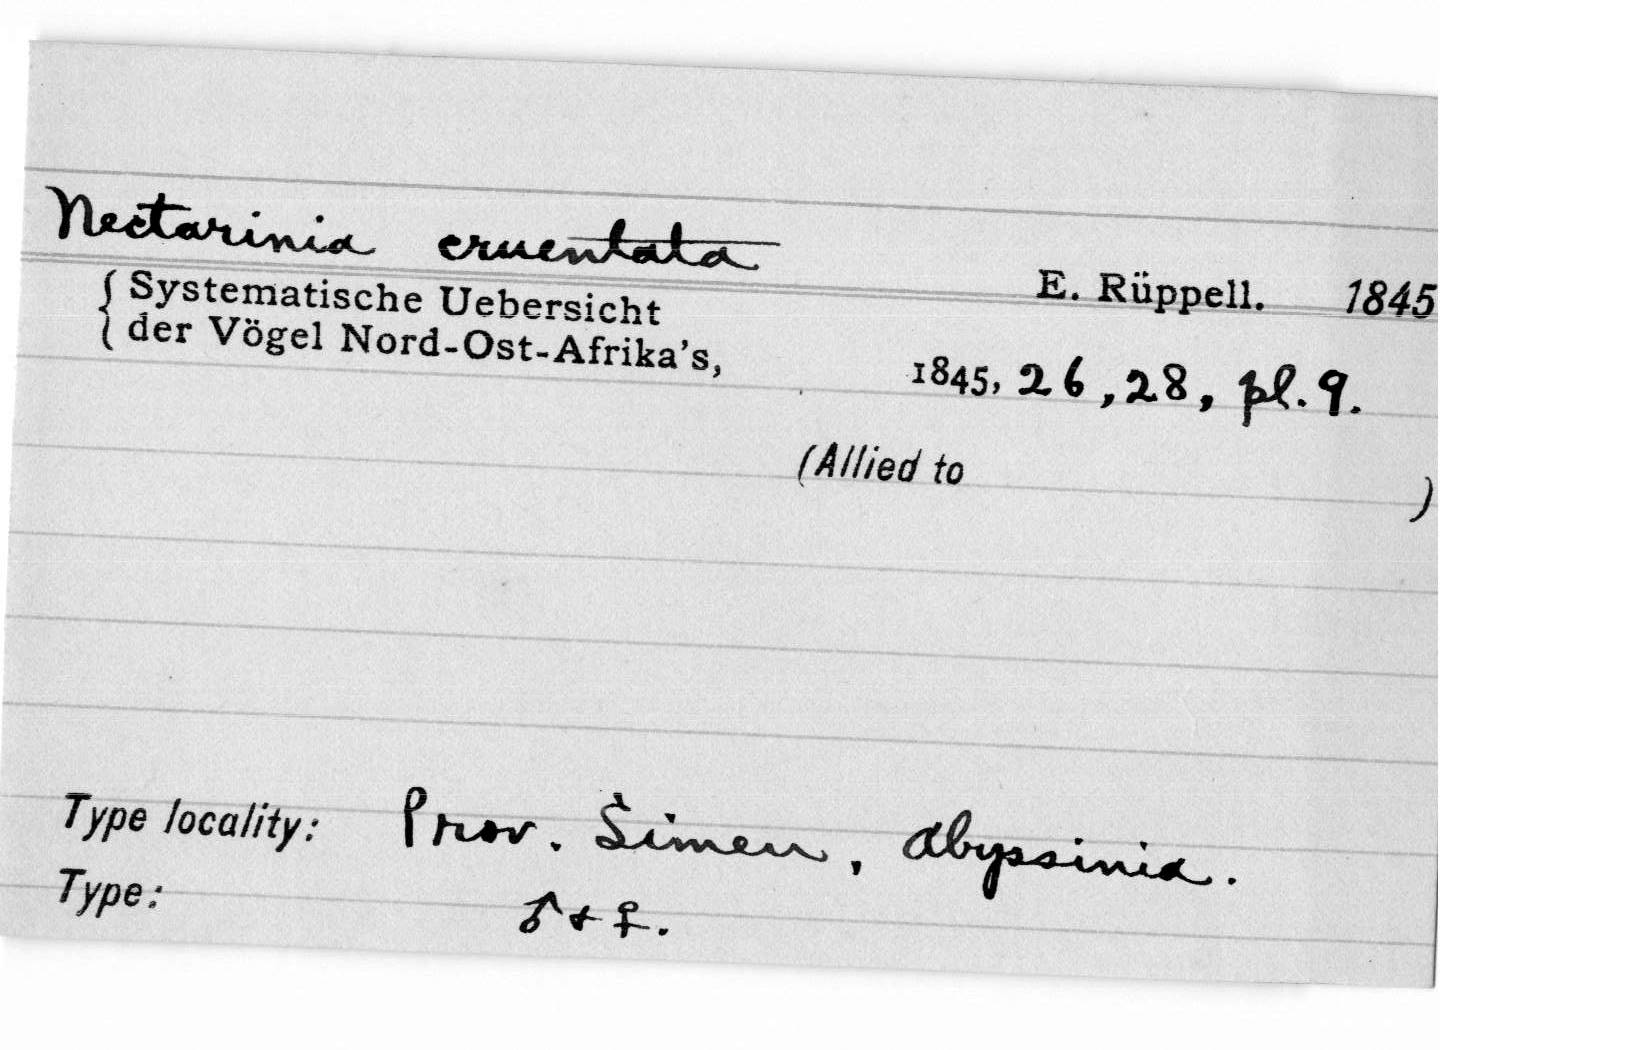 Nectarinia cruentata
E. Rüppell. 1845
{ Systematische Uebersicht
der Vögel Nord-Ost-Afrika's, 1845, 26, 28, pl. 9.
(Allied to )
Type locality: Prov. Simen, Abyssinia.
Type: ♂ + ♀.